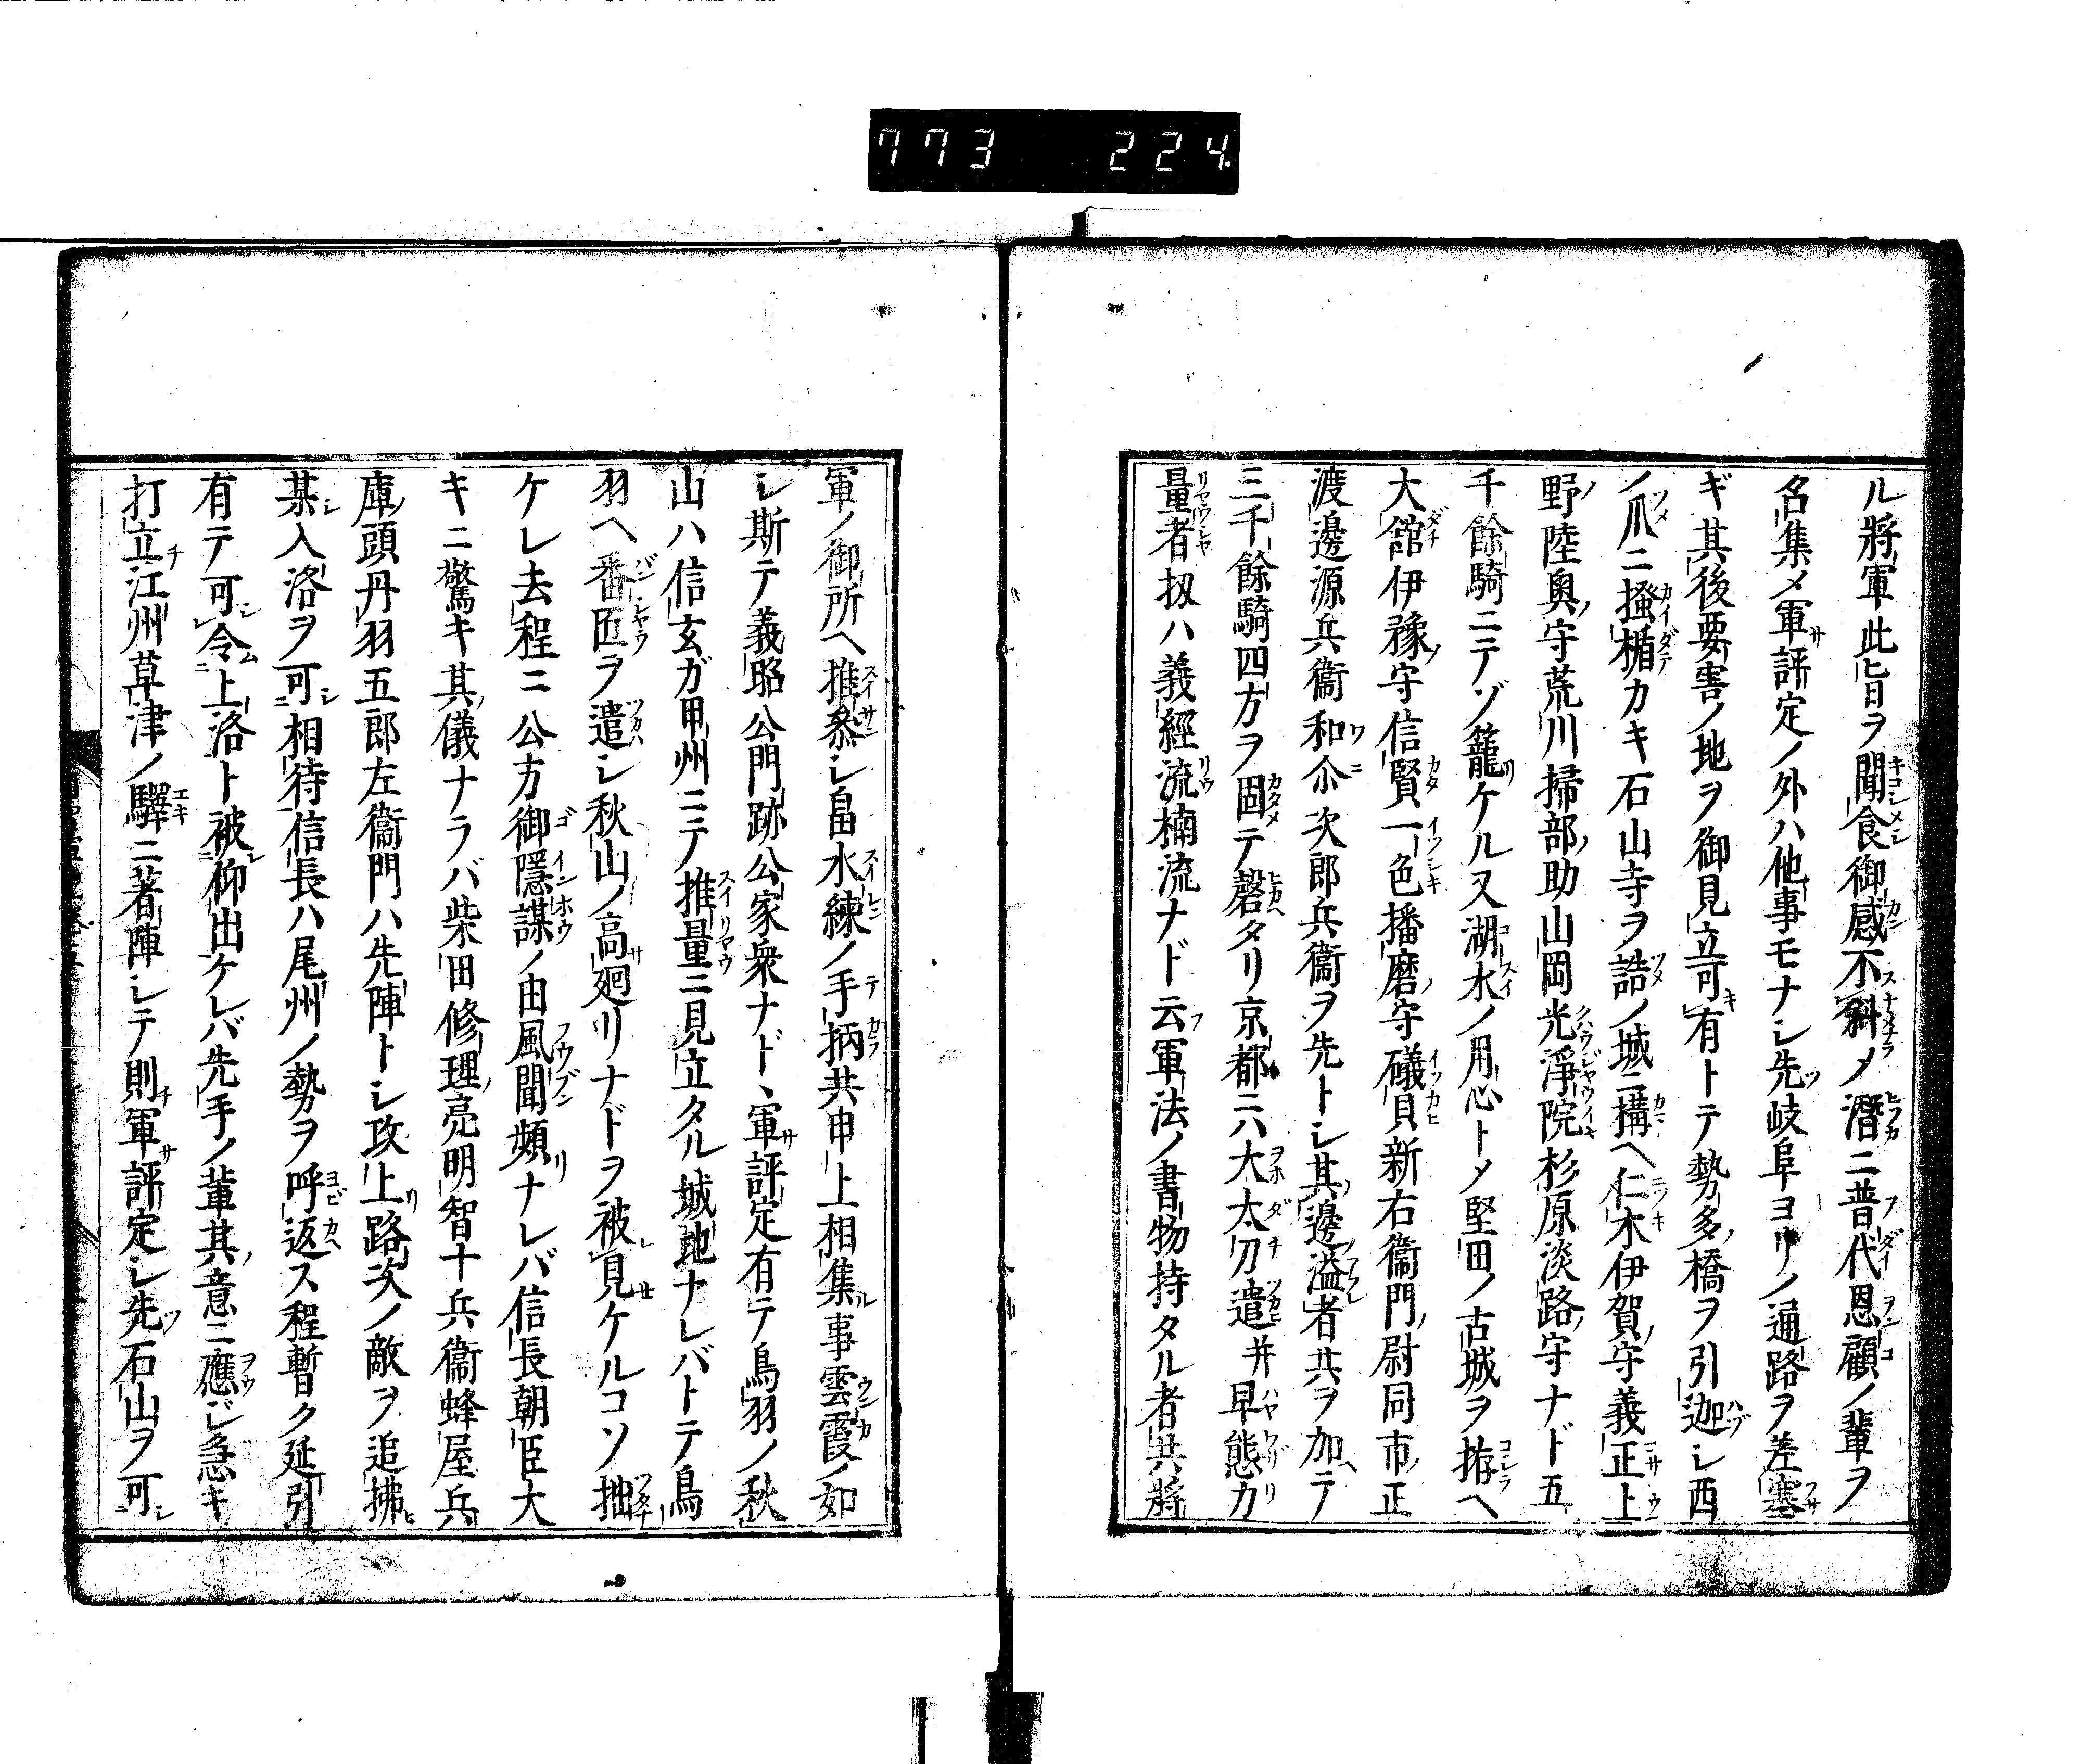 773 224
ル將軍此旨ヲ聞食御感不斜メ潛ニ普代恩顧ノ輩ヲ
名集メ軍評定ノ外ハ他事モナシ先岐阜ヨリノ通路ヲ差塞
ギ其後要害ノ地ヲ御見立可有トテ勢多橋ヲ引迦シ西
ノ爪ニ搔楯カキ石山寺ヲ詰ノ城ニ構ヘ仁木伊賀守義正上
野陸奧守荒川掃部助山岡光淨院杉原淡路守ナド五
千餘騎ニテゾ籠ケル又湖水ノ用心トメ堅田ノ古城ヲ拵ヘ
大舘伊豫守信賢一色播磨守礒貝新右衞門尉同市正
渡邊源兵衞和尒次郎兵衞ヲ先トシ其邊溢者共ヲ加テ
三千餘騎四方ヲ固テ磬タリ京都ニハ大太刀遣并早態力
量者扱ハ義經流楠流ナド云軍法ノ書物持タル者共將
軍ノ御所ヘ推參シ畠水練ノ手柄共申上相集事雲霞ノ如
シ斯テ義昭公門跡公家衆ナド、軍評定有テ鳥羽ノ秋
山ハ信玄ガ甲州ニテ推量ニ見立タル城地ナレバトテ鳥
羽ヘ番匠ヲ遣シ秋山ノ高廻リナドヲ被見ケルコソ拙
ケレ去程ニ公方御隱謀ノ由風聞頻ナレバ信長朝臣大
キニ驚キ其儀ナラバ柴田修理亮明智十兵衞蜂屋兵
庫頭丹羽五郎左衞門ハ先陣トシ攻上路次ノ敵ヲ追拂
某入洛ヲ可相待信長ハ尾州ノ勢ヲ呼返ス程暫ク延引
有テ可令上洛ト被仰出ケレバ先手ノ輩其意ニ應ジ急キ
打立江州草津ノ驛ニ著陣シテ則軍評定シ先石山ヲ可